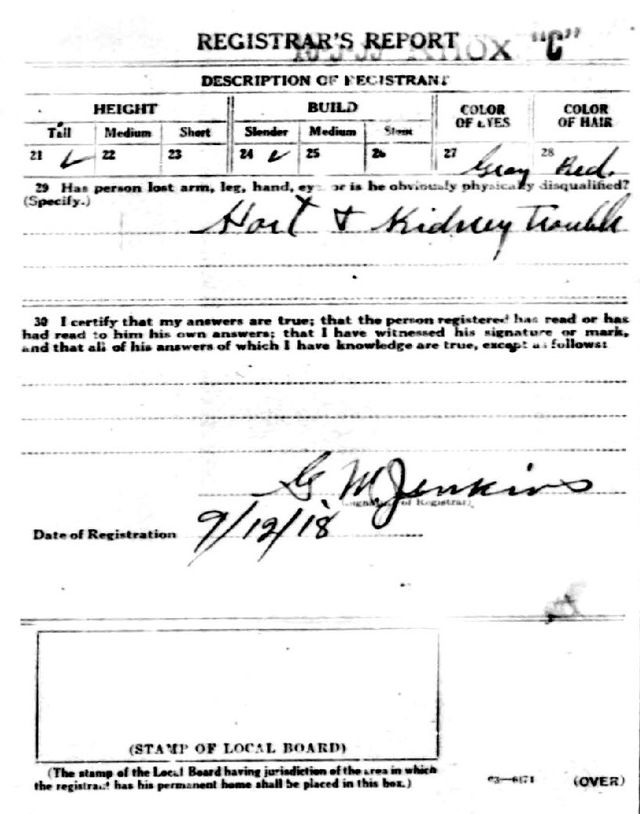 REGISTRAR'S REPORT KNOX "C"
DESCRIPTION OF REGISTRANT
HEIGHT BUILD COLOR OF EYES COLOR OF HAIR
Tall Medium Short Slender Medium Stout
21 ✓ 22 23 24 ✓ 25 26 27 Gray 28 Red.
29 Has person lost arm, leg, hand, eye, or is he obviously physically disqualified?
(Specify.)
Hart & Kidney Trouble
30 I certify that my answers are true; that the person registered has read or has
had read to him his own answers; that I have witnessed his signature or mark,
and that all of his answers of which I have knowledge are true, except as follows:
G M Jenkins
(Signature of Registrar)
Date of Registration 9/12/18
(STAMP OF LOCAL BOARD)
(The stamp of the Local Board having jurisdiction of the area in which
the registrant has his permanent home shall be placed in this box.)
03—6171 (OVER)